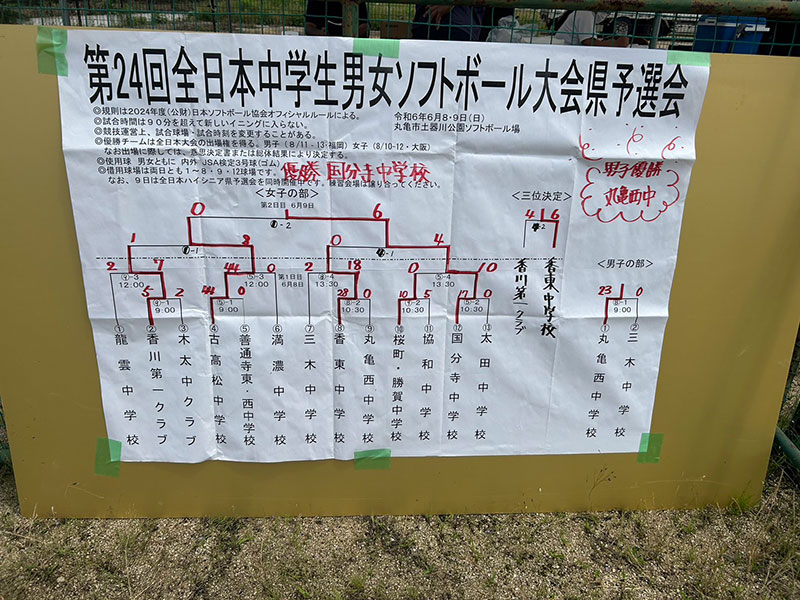 第24回全日本中学生男女ソフトボール大会県予選会
◎規則は2024年度(公財)日本ソフトボール協会オフィシャルルールによる。
令和6年6月8・9日(日)
◎試合時間は90分を超えて新しいイニングに入らない。
丸亀市土器川公園ソフトボール場
◎競技運営上、試合球場・試合時刻を変更することがある。
◎優勝チームは全日本大会の出場権を得る。男子(8/11-13・福岡)女子(8/10-12・大阪)
なお出場に際しては、意思決定書または総体結果により決定する。
◎使用球 男女ともに 内外 JSA検定3号球(ゴム)
◎借用球場は両日とも1~8・9・12球場です。
なお、9日は全日本ハイシニア県予選会を同時開催中です。練習会場は譲り合ってください。
優勝 国分寺中学校
男子優勝
丸亀西中
<女子の部>
第2日目 6月9日
0 6
1 8 0 4
第1日目
6月8日
2 7 44 0 2 18 0 10
12:00
12:00
13:30
13:30
5 2 44 0 28 0 10 5 17 0
9:00
9:00
10:30
10:30
10:30
①龍雲中学校
②香川第一クラブ
③木太中クラブ
④古高松中学校
⑤善通寺東・西中学校
⑥満濃中学校
⑦三木中学校
⑧香東中学校
⑨丸亀西中学校
⑩桜町・勝賀中学校
⑪協和中学校
⑫国分寺中学校
⑬太田中学校
<三位決定>
4 6
香川第一クラブ
香東中学校
<男子の部>
23 0
9:00
①丸亀西中学校
②三木中学校